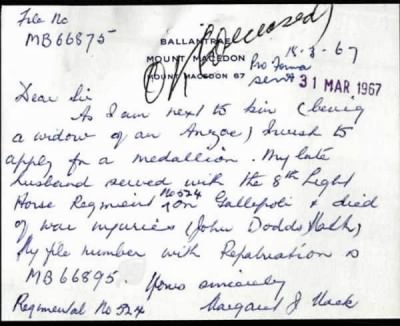 File No
MB66875
OK (Deceased)
BALLANTRAE
MOUNT MACEDON
MOUNT MACEDON 67
18-3-67
Pro Forma
sent 31 MAR 1967
Dear Sir
As I am next to kin (being
a widow of an Anzac) I wish to
apply for a medallion. My late
husband served with the 8th Light
Horse Regiment No 524 on Gallepoli & died
of war injuries (John Dodds
My file number with Repatriation is
MB66895.
Yours sincerely
Regimental No 524
Margaret J